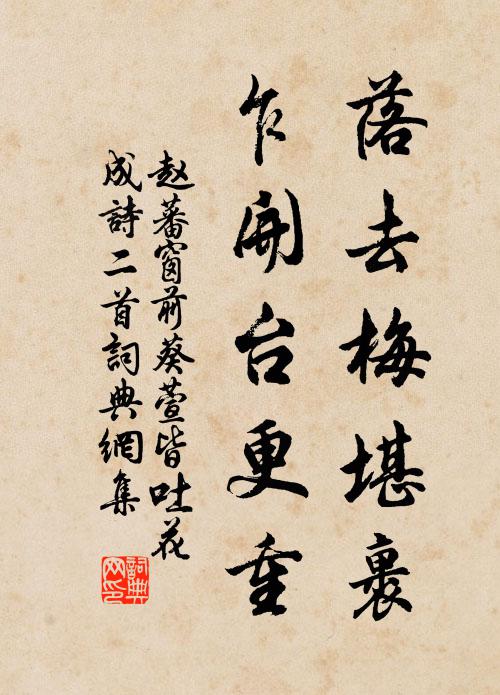 落去梅堪裹
乍開台更重
赵蕃窗前葵萱皆吐花
成詩二首詞典網集
詞典网印